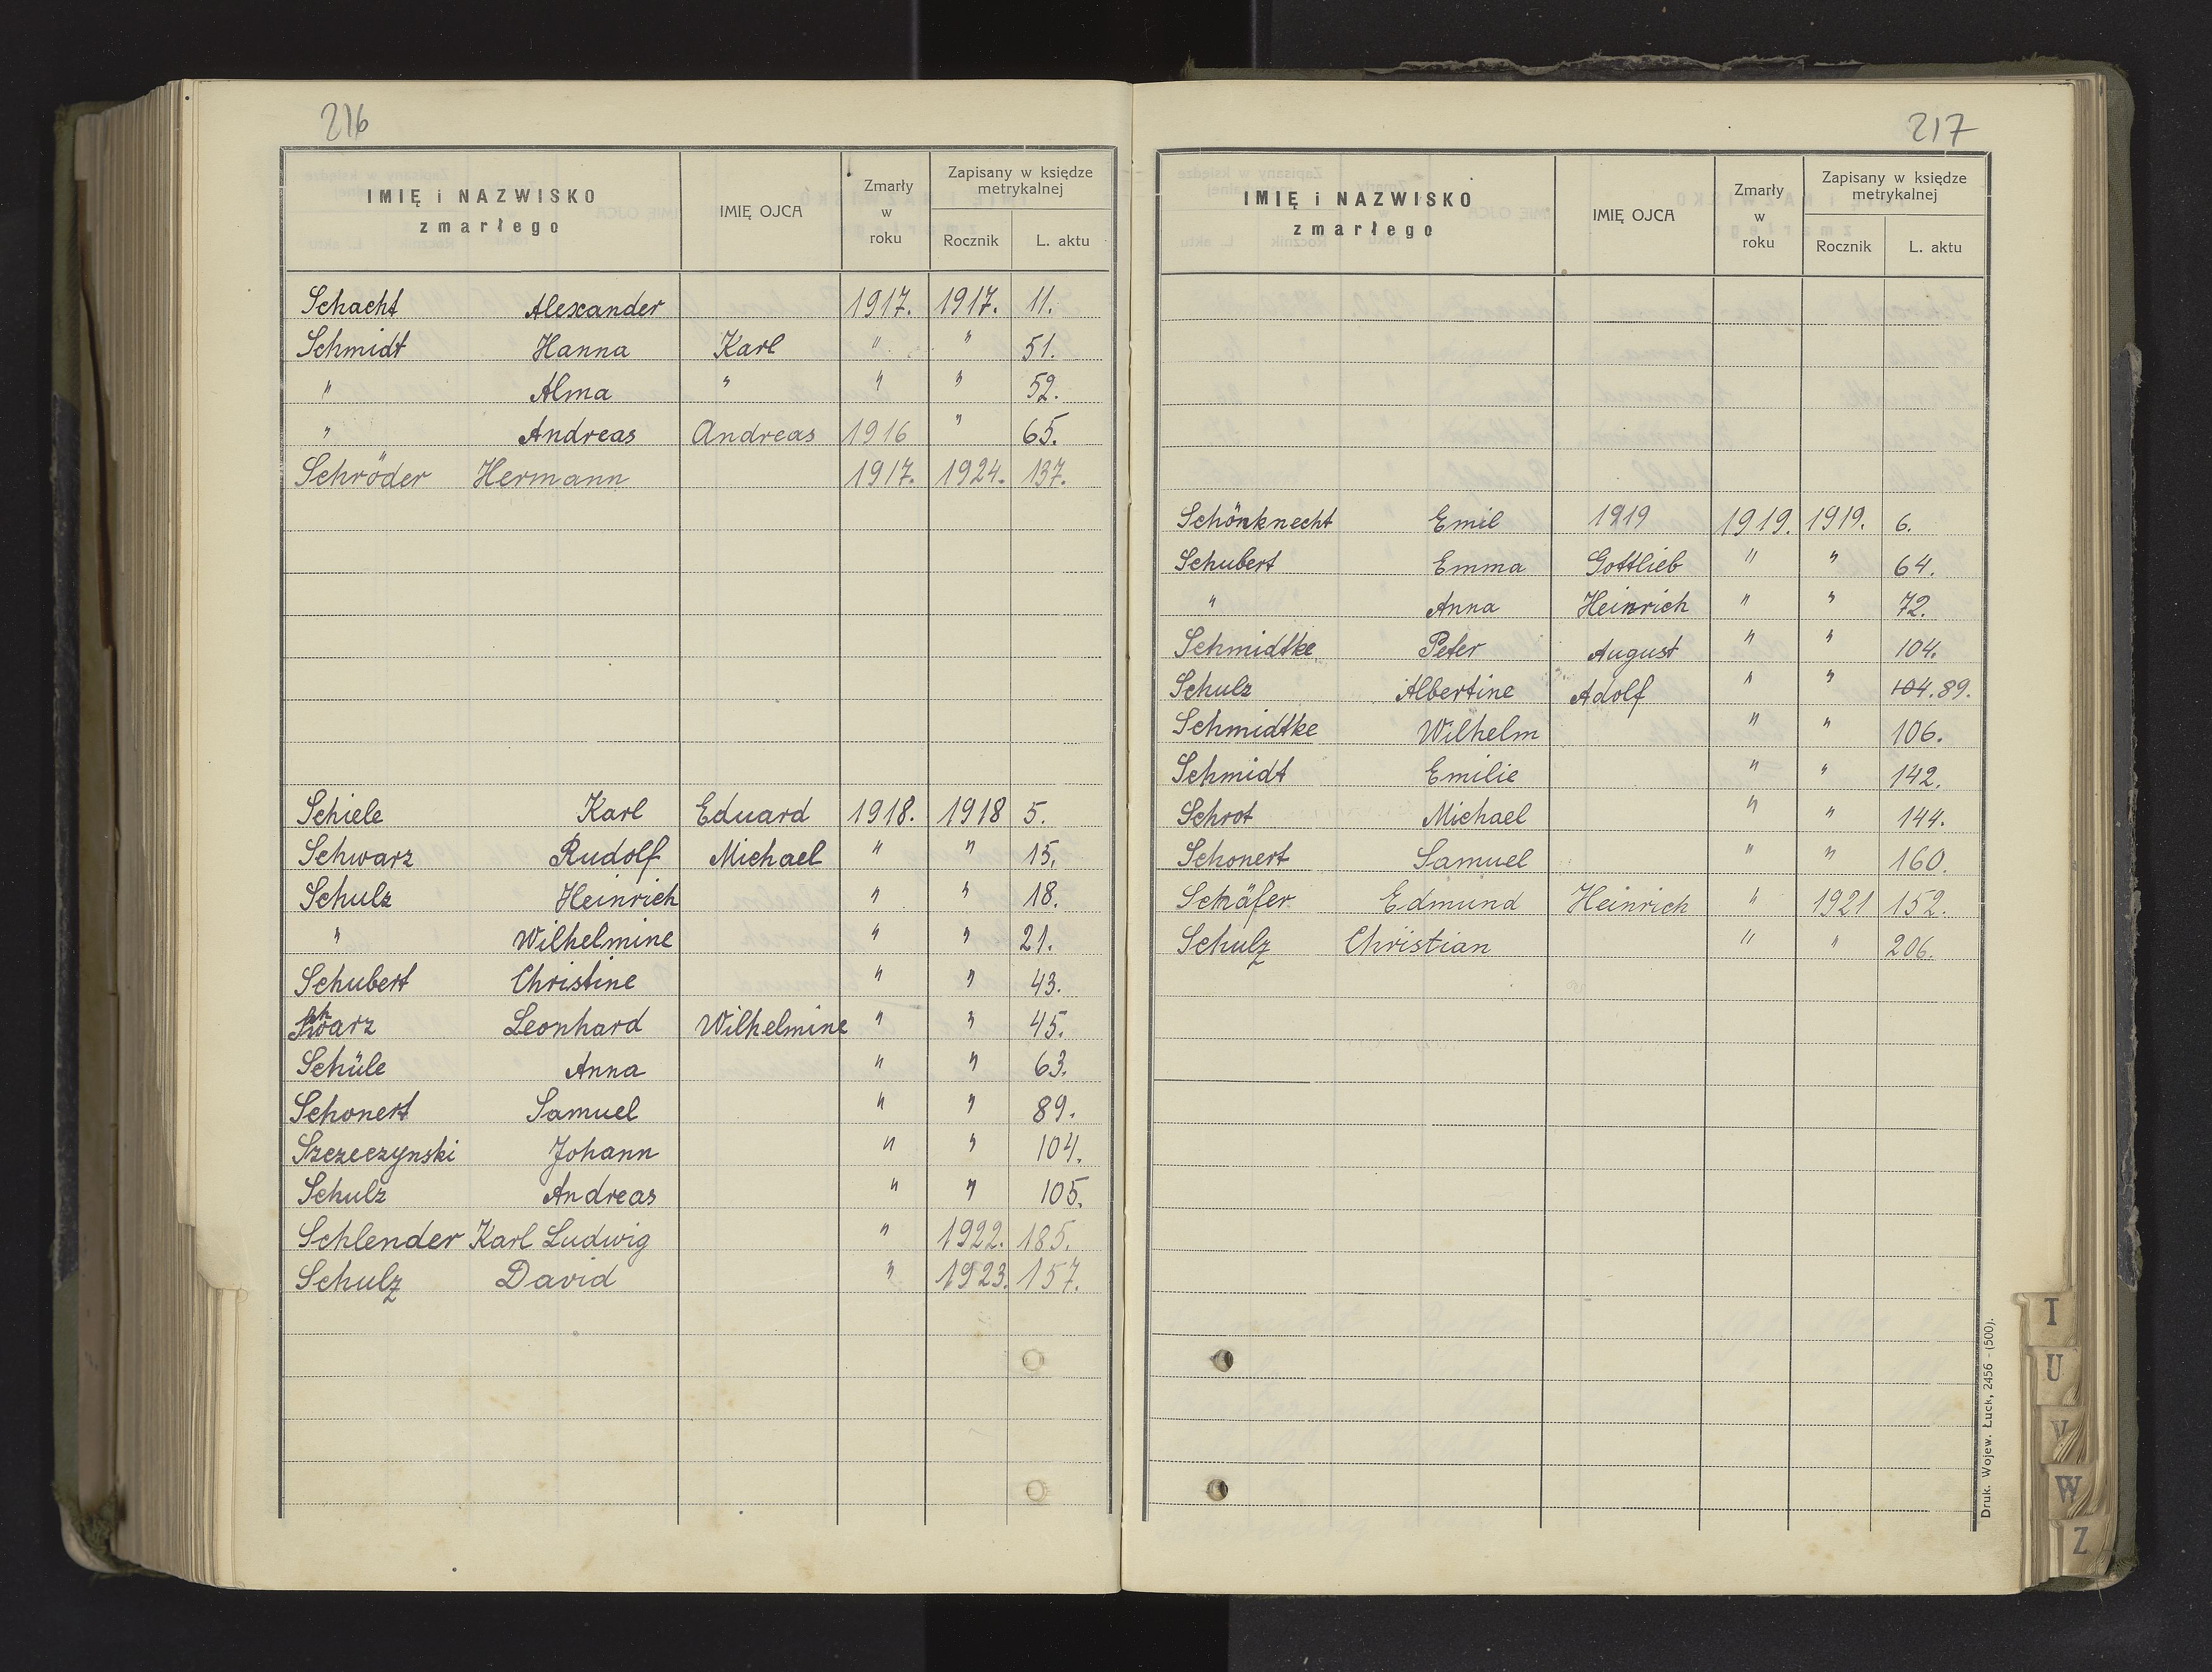 216
IMIĘ i NAZWISKO zmarłego IMIĘ OJCA Zmarły w roku Zapisany w księdze metrykalnej Rocznik L. aktu
Schacht Alexander 1917. 1917. 11.
Schmidt Hanna Karl " " 51.
" Alma " " " 52.
" Andreas Andreas 1916 " 65.
Schröder Hermann 1917. 1924. 137.
Schiele Karl Eduard 1918. 1918 5.
Schwarz Rudolf Michael " " 15.
Schulz Heinrich " " 18.
" Wilhelmine " " 21.
Schubert Christine " " 43.
Schwarz Leonhard Wilhelmine " " 45.
Schüle Anna " " 63.
Schonert Samuel " " 89.
Szczeczynski Johann " " 104.
Schulz Andreas " " 105.
Schlender Karl Ludwig " 1922. 185.
Schulz David " 1923. 157.
217
IMIĘ i NAZWISKO zmarłego IMIĘ OJCA Zmarły w roku Zapisany w księdze metrykalnej Rocznik L. aktu
Schönknecht Emil 1919 1919. 1919. 6.
Schubert Emma Gottlieb " " 64.
" Anna Heinrich " " 72.
Schmidtke Peter August " " 104.
Schulz Albertine Adolf " " 104. 89.
Schmidtke Wilhelm " " 106.
Schmidt Emilie " " 142.
Schrot Michael " " 144.
Schonert Samuel " " 160.
Schäfer Edmund Heinrich " 1921 152.
Schulz Christian " " 206.
Druk. Wojew. Łuck, 2456 - (500).
T
U
V
W
Z